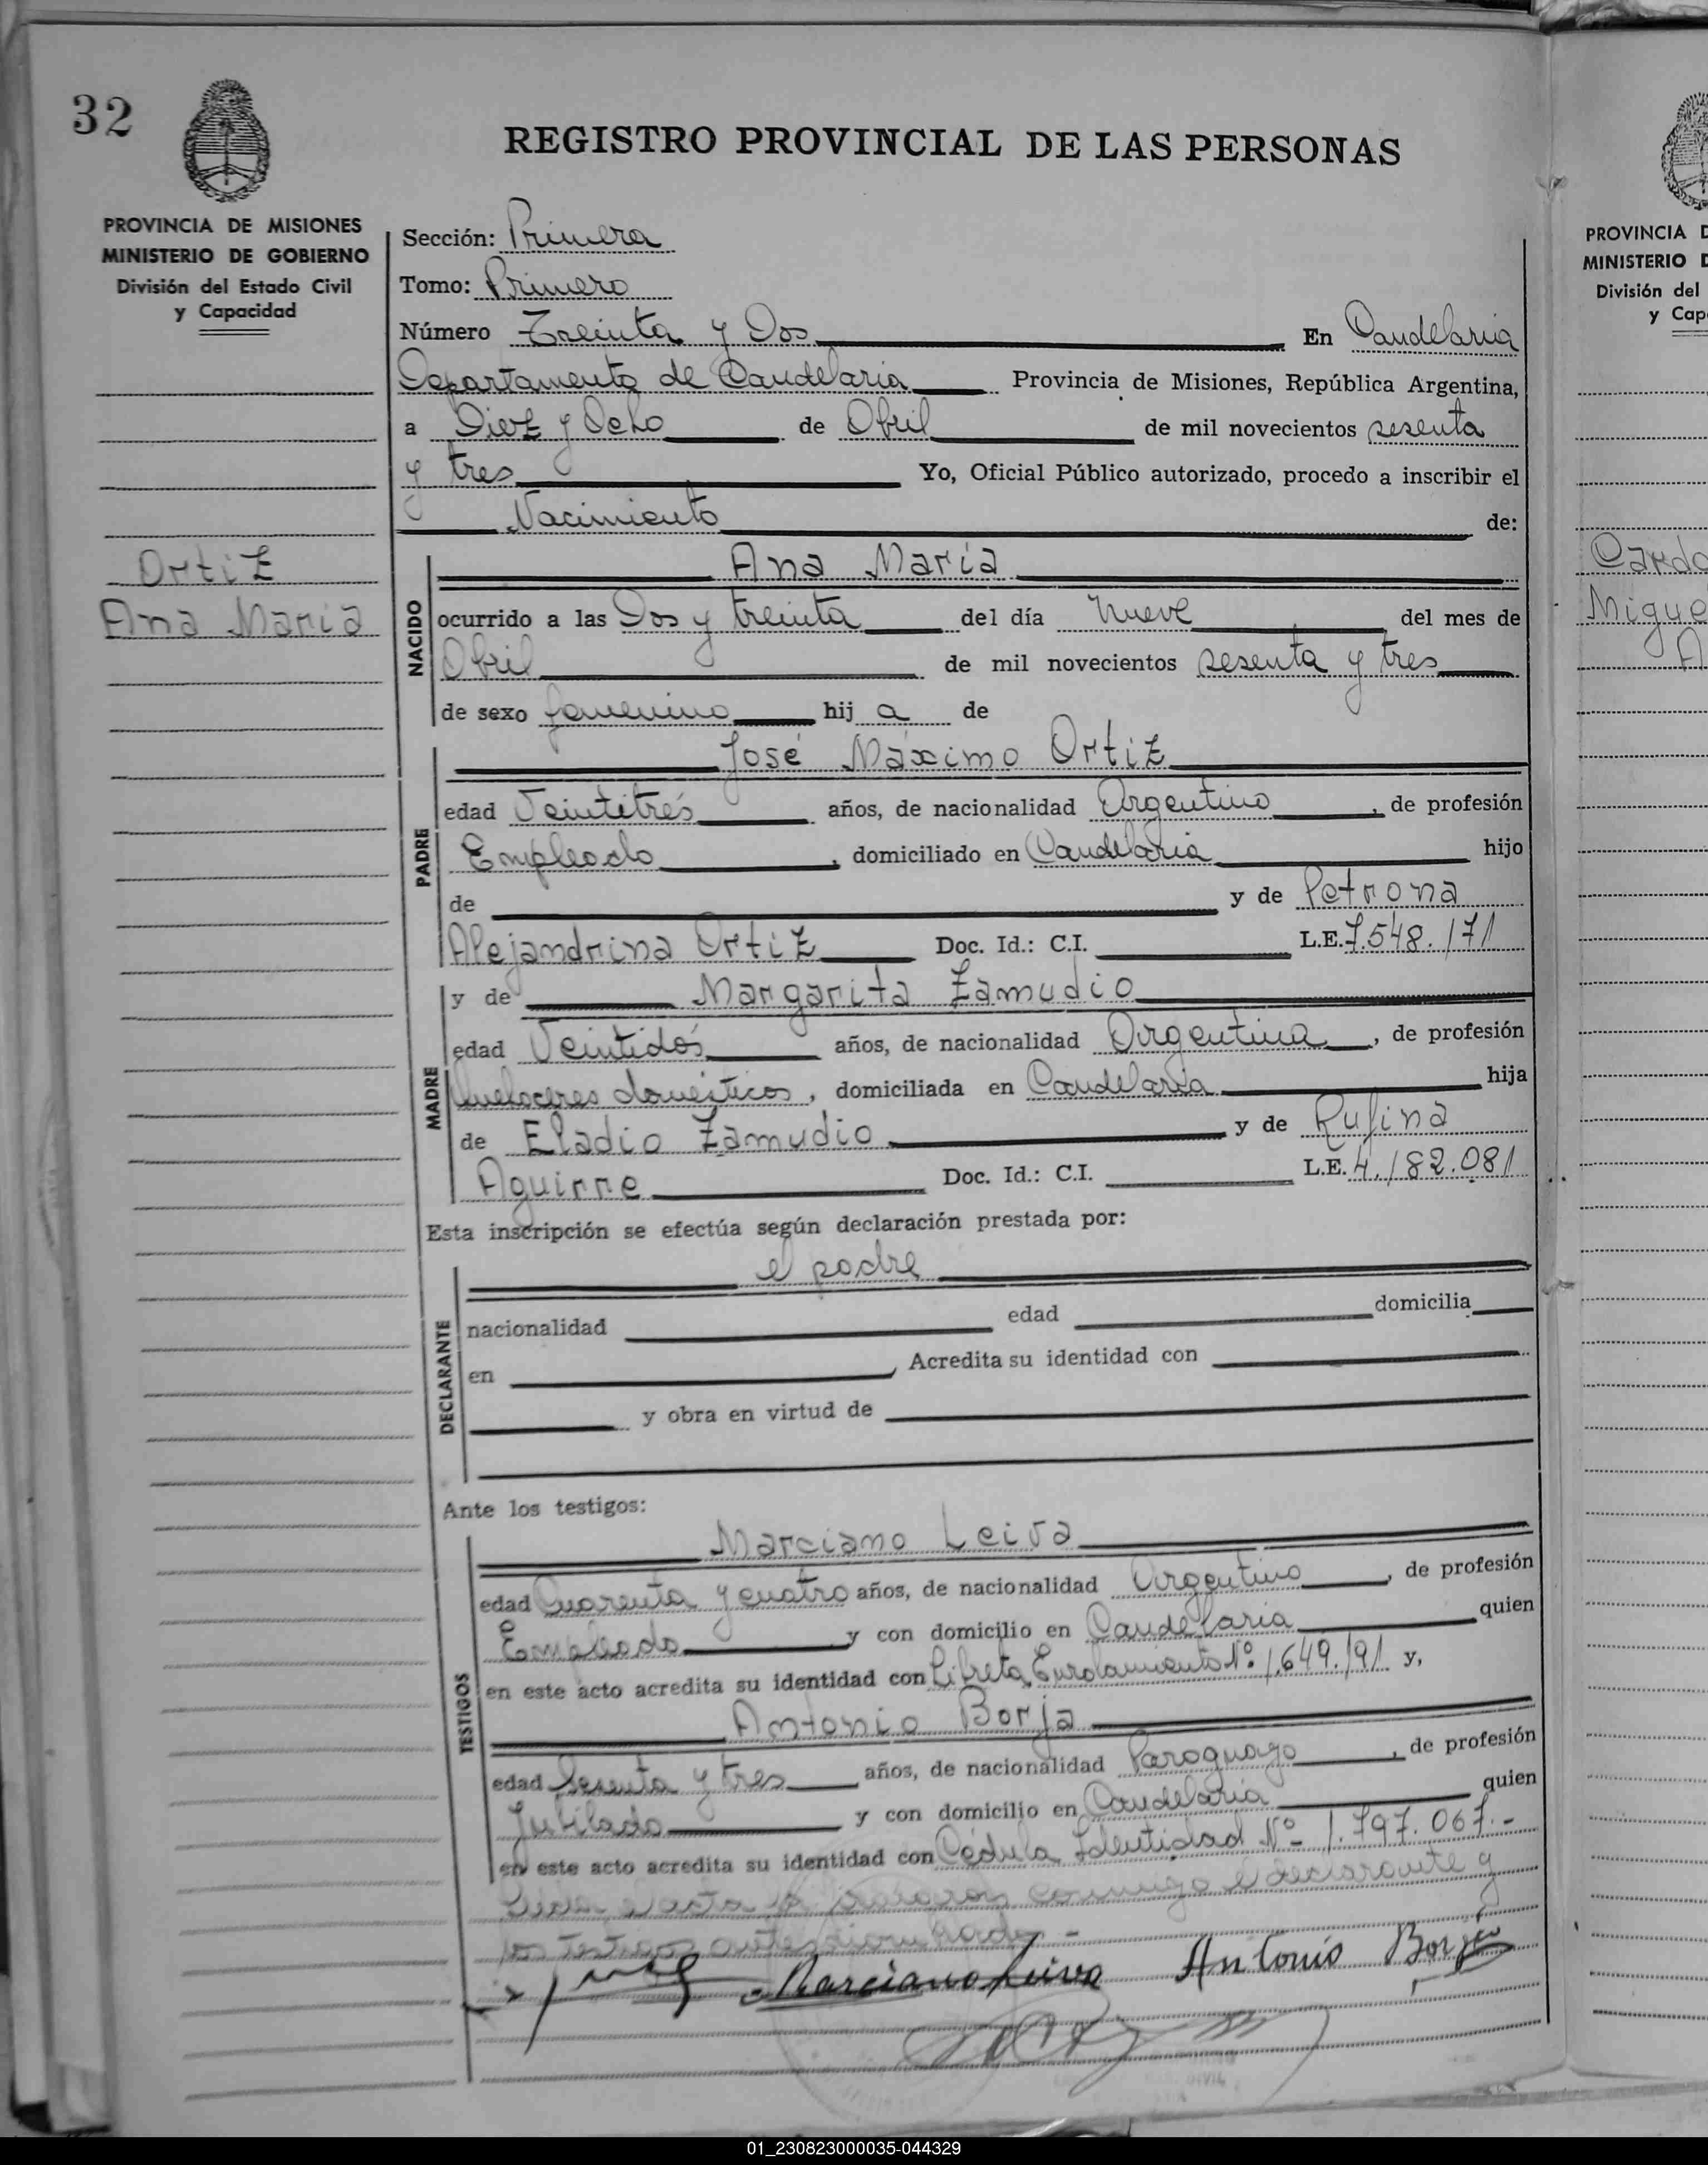 32
REGISTRO PROVINCIAL DE LAS PERSONAS
PROVINCIA DE MISIONES
MINISTERIO DE GOBIERNO
División del Estado Civil
y Capacidad
Ortiz
Ana María
Sección: Primera
Tomo: Primero
Número Treinta y Dos En Candelaria
Departamento de Candelaria Provincia de Misiones, República Argentina,
a Diez y Ocho de Abril de mil novecientos sesenta
y tres Yo, Oficial Público autorizado, procedo a inscribir el
Nacimiento de:
NACIDO
Ana María
ocurrido a las Dos y treinta del día nueve del mes de
Abril de mil novecientos sesenta y tres
de sexo femenino hij a de
PADRE
José Máximo Ortiz
edad Veintitrés años, de nacionalidad Argentino, de profesión
Empleado, domiciliado en Candelaria hijo
de y de Petrona
Alejandrina Ortiz Doc. Id.: C.I. L.E. 7.548.171
MADRE
y de Margarita Zamudio
edad Veintidós años, de nacionalidad Argentina, de profesión
Quehaceres domésticos, domiciliada en Candelaria hija
de Eladio Zamudio y de Rufina
Aguirre Doc. Id.: C.I. L.E. 4.182.081
Esta inscripción se efectúa según declaración prestada por:
DECLARANTE
el padre
nacionalidad edad domicilia
en , Acredita su identidad con
y obra en virtud de
Ante los testigos:
TESTIGOS
Marciano Leiva
edad Cuarenta y cuatro años, de nacionalidad Argentino, de profesión
Empleado y con domicilio en Candelaria quien
en este acto acredita su identidad con Libreta Enrolamiento Nº 1.649.191 y,
Antonio Borja
edad Sesenta y tres años, de nacionalidad Paraguayo, de profesión
Jubilado y con domicilio en Candelaria quien
en este acto acredita su identidad con Cédula Identidad Nº 1.797.067.-
el acta conmigo el declarante y
los testigos antes -
Marciano Leiva Antonio Borja
PROVINCIA D
MINISTERIO D
División del
y Cap
Cardo
Migue
A
01_230823000035-044329